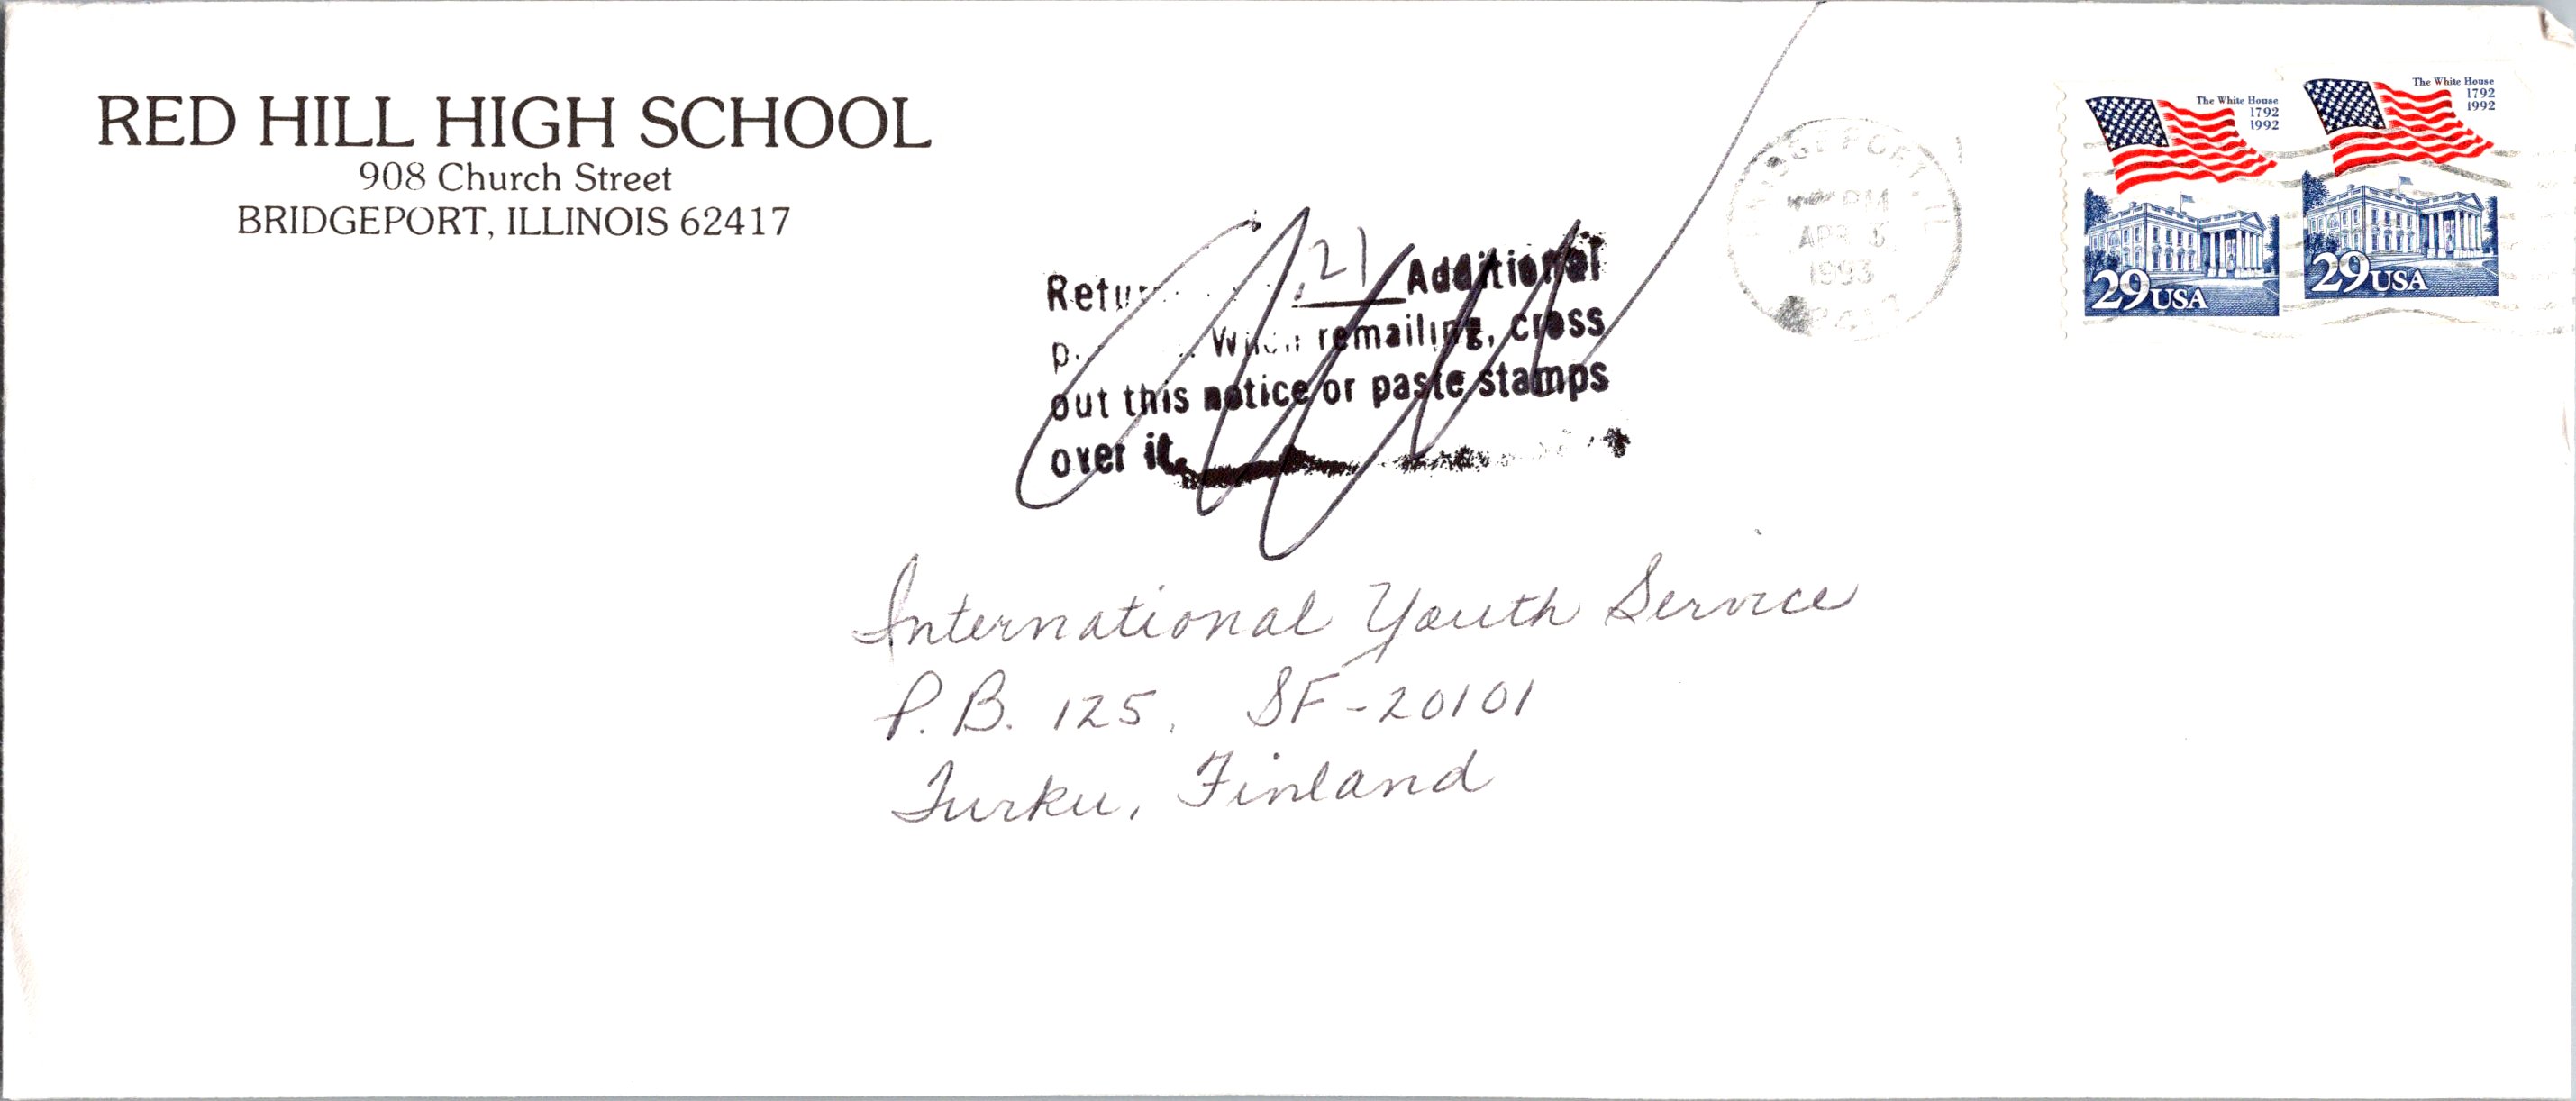 RED HILL HIGH SCHOOL
908 Church Street
BRIDGEPORT, ILLINOIS 62417
.21 Additional
When remailing, cross
out this notice or paste stamps
over it.
BRIDGEPORT, IL
PM
APR
1993
The White House
1792
1992
29 USA
The White House
1792
1992
29 USA
International Youth Service
P.B. 125, SF-20101
Turku, Finland